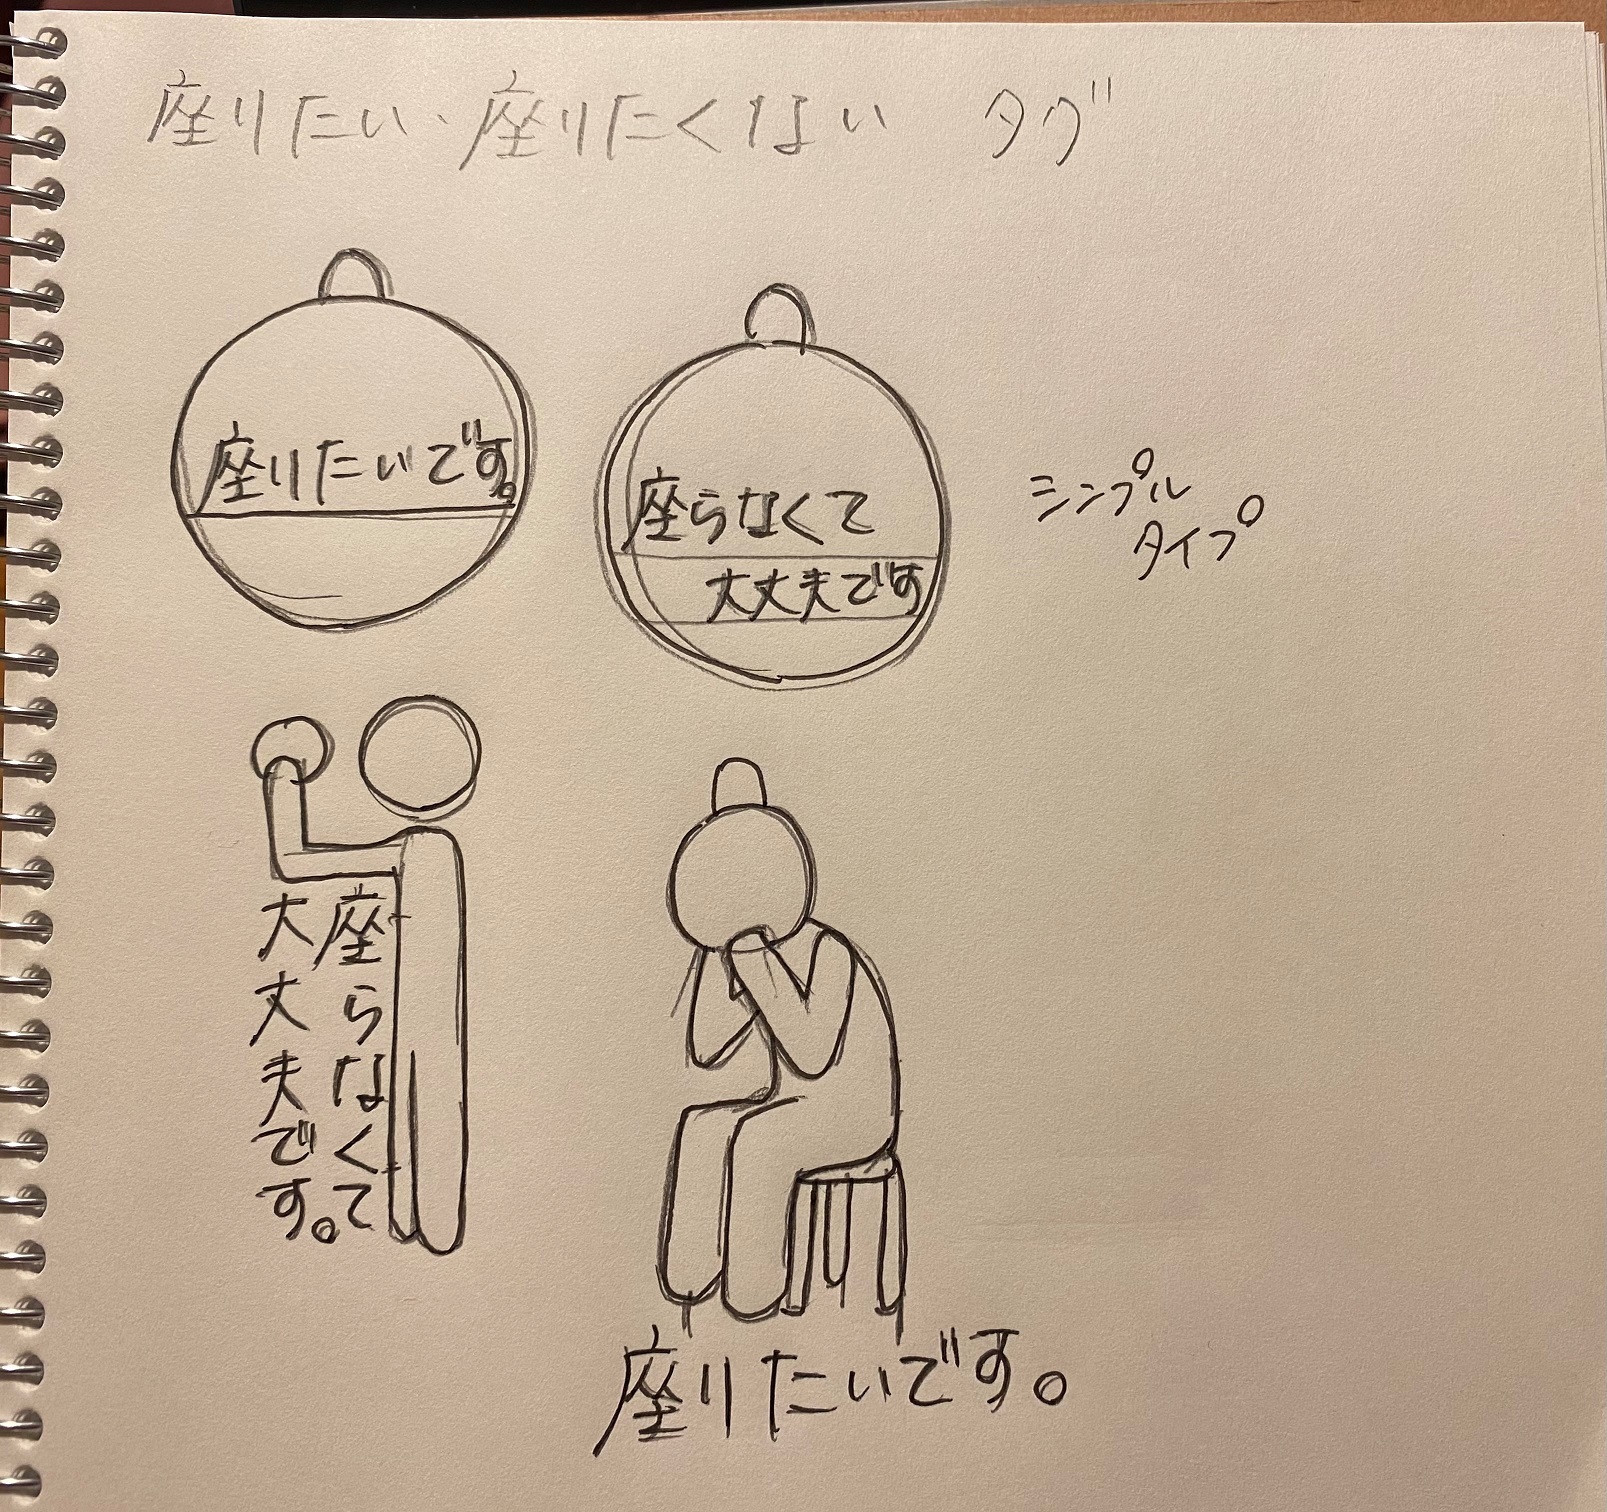 座りたい・座りたくない タグ
座りたいです。
座らなくて
大丈夫です
シンプル
タイプ
座らなくて
大丈夫です。
座りたいです。